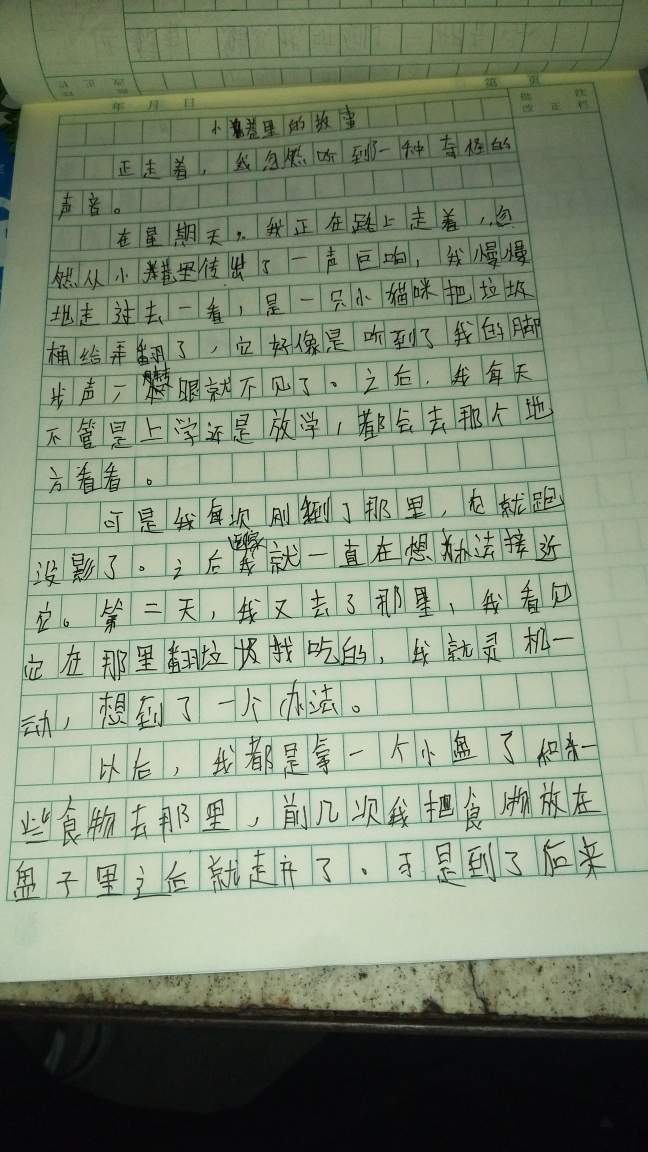 第 页
年 月 日
批 注
改 正 栏
小巷里的故事
正走着，我忽然听到一种奇怪的
声音。
在星期天，我正在路上走着，忽
然从小巷里传出了一声巨响，我慢慢
地走过去一看，是一只小猫咪把垃圾
桶给弄翻了，它好像是听到了我的脚
步声，眼就不见了。之后，我每天
不管是上学还是放学，都会去那个地
方看看。
可是我每次刚到了那里，它就跑
没影了。之后回家我就一直在想办法接近
它。第二天，我又去了那里，我看见
它在那里翻垃圾找吃的，我就灵机一
动，想到了一个办法。
以后，我都是拿一个小盘了和来一
些食物去那里，前几次我把食物放在
盘子里之后就走开了。于是到了后来